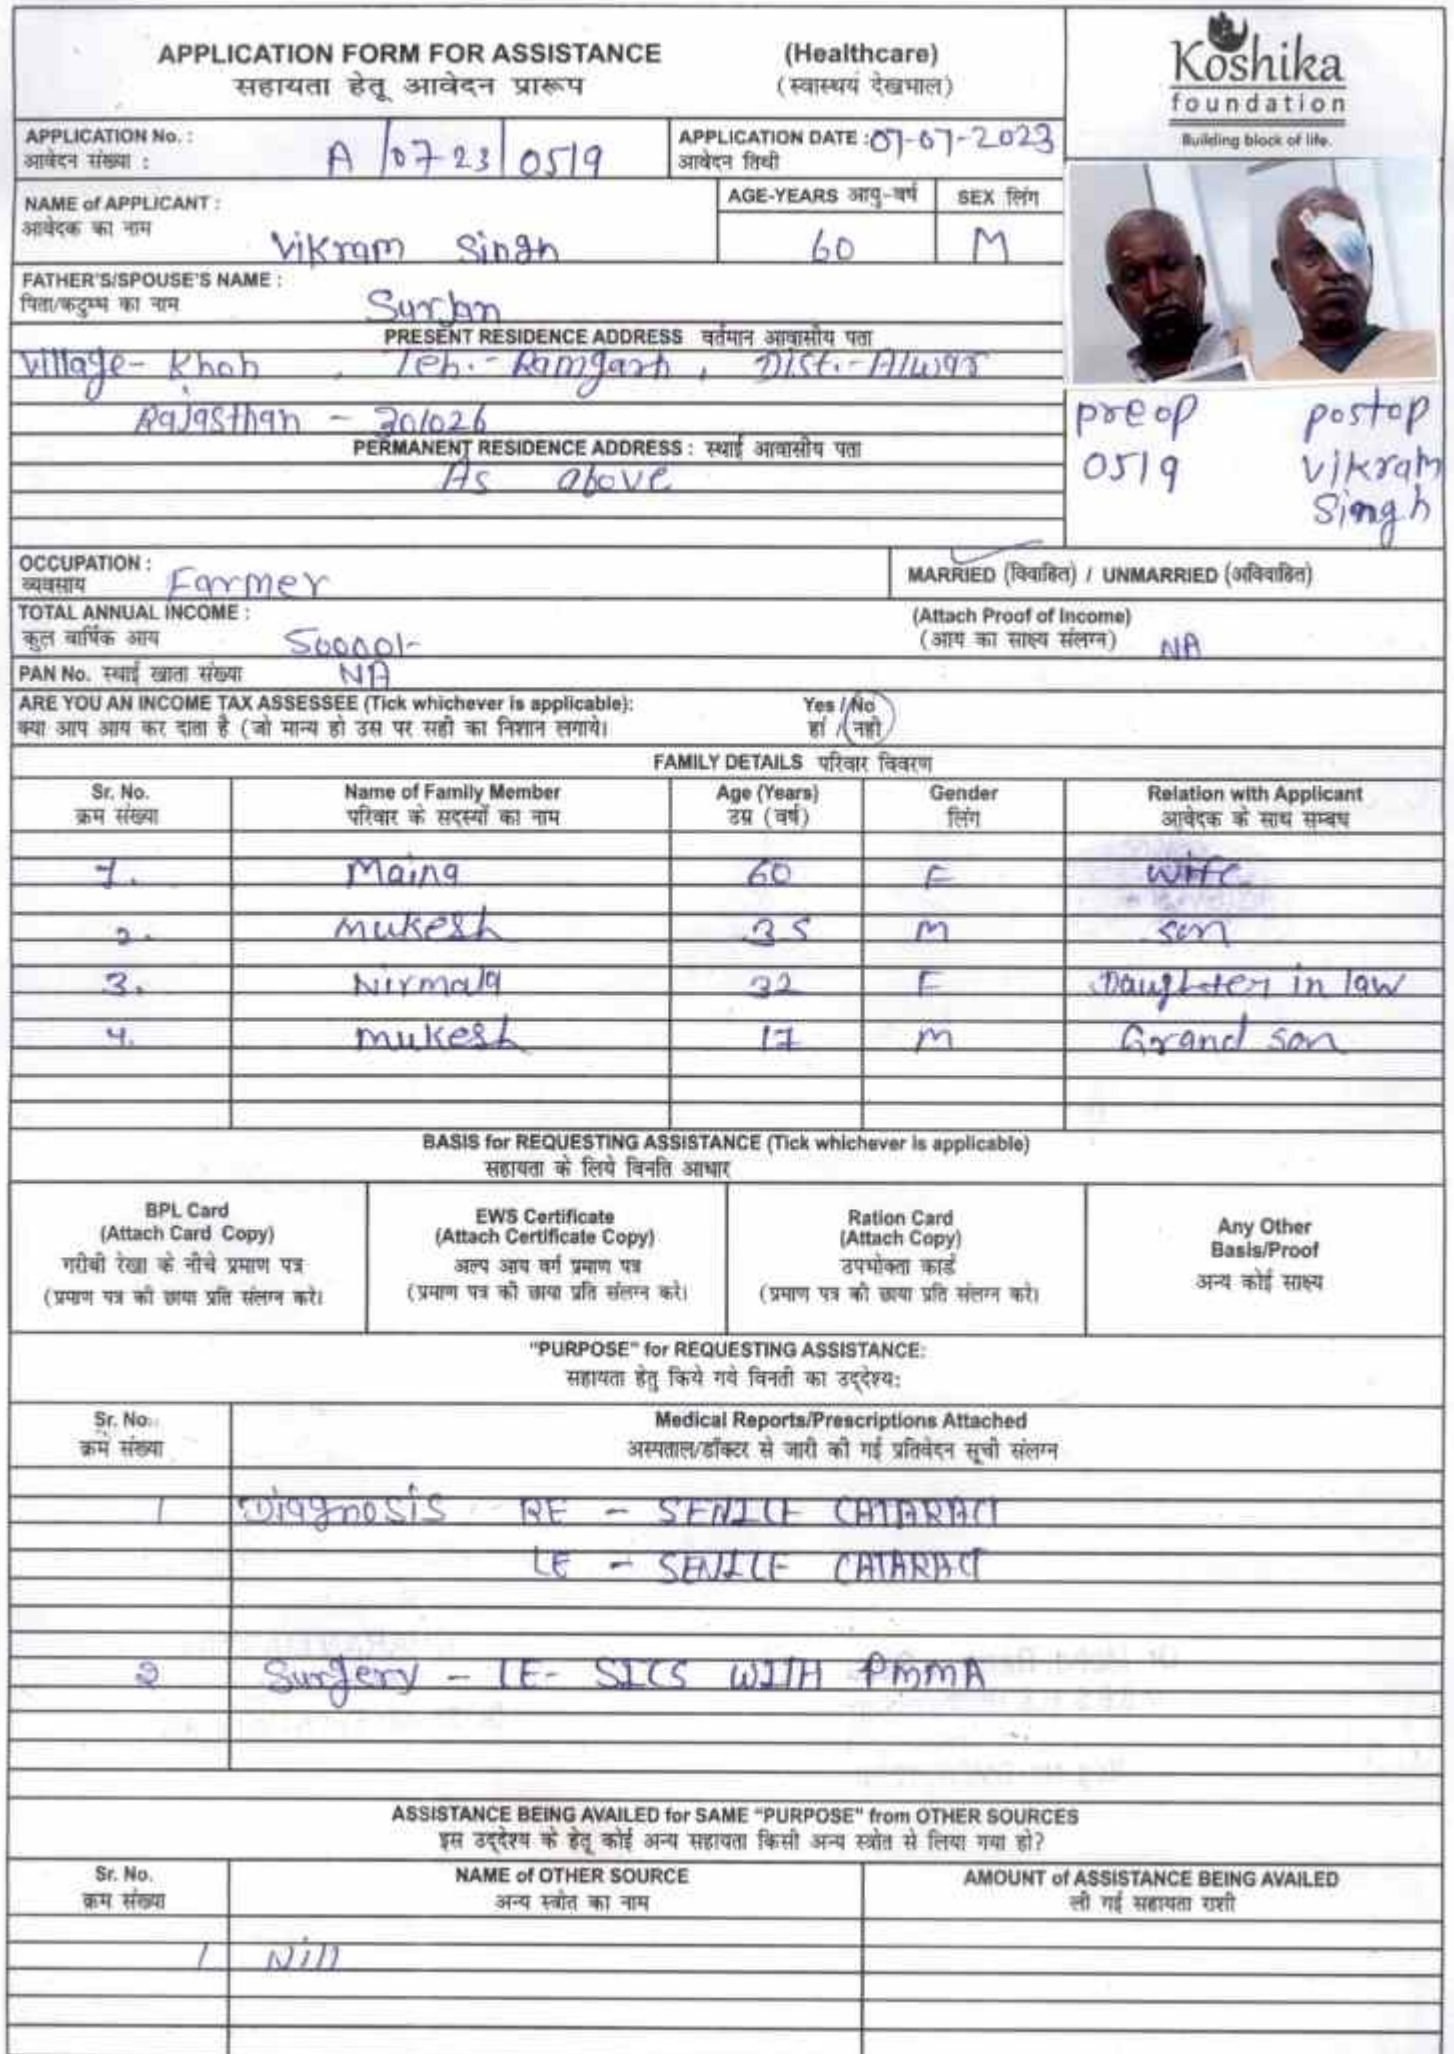 APPLICATION FORM FOR ASSISTANCE (Healthcare)
सहायता हेतू आवेदन प्रारूप (स्वास्थयं देखभाल)
Koshika
foundation
Building block of life.
APPLICATION No. : A/07-23/0519 APPLICATION DATE : 07-07-2023
आवेदन संख्या : आवेदन तिथी
NAME of APPLICANT : AGE-YEARS आयु-वर्ष SEX लिंग
आवेदक का नाम Vikram Singh 60 M
FATHER'S/SPOUSE'S NAME :
पिता/कटुम्ब का नाम Surjan
PRESENT RESIDENCE ADDRESS वर्तमान आवासीय पता
Village- Khoh, Teh.- Ramgarh, Dist.- Alwar
Rajasthan - 301026
PERMANENT RESIDENCE ADDRESS : स्थाई आवासीय पता
As above
preop postop
0519 Vikram
Singh
OCCUPATION :
व्यवसाय Farmer MARRIED (विवाहित) / UNMARRIED (अविवाहित)
TOTAL ANNUAL INCOME : (Attach Proof of Income)
कुल वार्षिक आय 50000/- (आय का साक्ष्य संलग्न) NA
PAN No. स्थाई खाता संख्या NA
ARE YOU AN INCOME TAX ASSESSEE (Tick whichever is applicable): Yes / No
क्या आप आय कर दाता है (जो मान्य हो उस पर सही का निशान लगाये। हां / नही
FAMILY DETAILS परिवार विवरण
Sr. No. Name of Family Member Age (Years) Gender Relation with Applicant
क्रम संख्या परिवार के सदस्यों का नाम उम्र (वर्ष) लिंग आवेदक के साथ सम्बध
1. Maina 60 F Wife
2. Mukesh 35 M Son
3. Nirmala 32 F Daughter in law
4. Mukesh 17 M Grand son
BASIS for REQUESTING ASSISTANCE (Tick whichever is applicable)
सहायता के लिये विनति आधार
BPL Card
(Attach Card Copy)
गरीबी रेखा के नीचे प्रमाण पत्र
(प्रमाण पत्र की छाया प्रति संलग्न करे।
EWS Certificate
(Attach Certificate Copy)
अल्प आय वर्ग प्रमाण पत्र
(प्रमाण पत्र की छाया प्रति संलग्न करे।
Ration Card
(Attach Copy)
उपभोक्ता कार्ड
(प्रमाण पत्र की छाया प्रति संलग्न करे।
Any Other
Basis/Proof
अन्य कोई साक्ष्य
"PURPOSE" for REQUESTING ASSISTANCE:
सहायता हेतु किये गये विनती का उद्देश्य:
Sr. No. Medical Reports/Prescriptions Attached
क्रम संख्या अस्पताल/डॉक्टर से जारी की गई प्रतिवेदन सूची संलग्न
1 Diagnosis RE - SENILE CATARACT
LE - SENILE CATARACT
2 Surgery - LE- SICS WITH PMMA
ASSISTANCE BEING AVAILED for SAME "PURPOSE" from OTHER SOURCES
इस उद्देश्य के हेतू कोई अन्य सहायता किसी अन्य स्त्रोत से लिया गया हो?
Sr. No. NAME of OTHER SOURCE AMOUNT of ASSISTANCE BEING AVAILED
क्रम संख्या अन्य स्त्रोत का नाम ली गई सहायता राशी
1 Nill